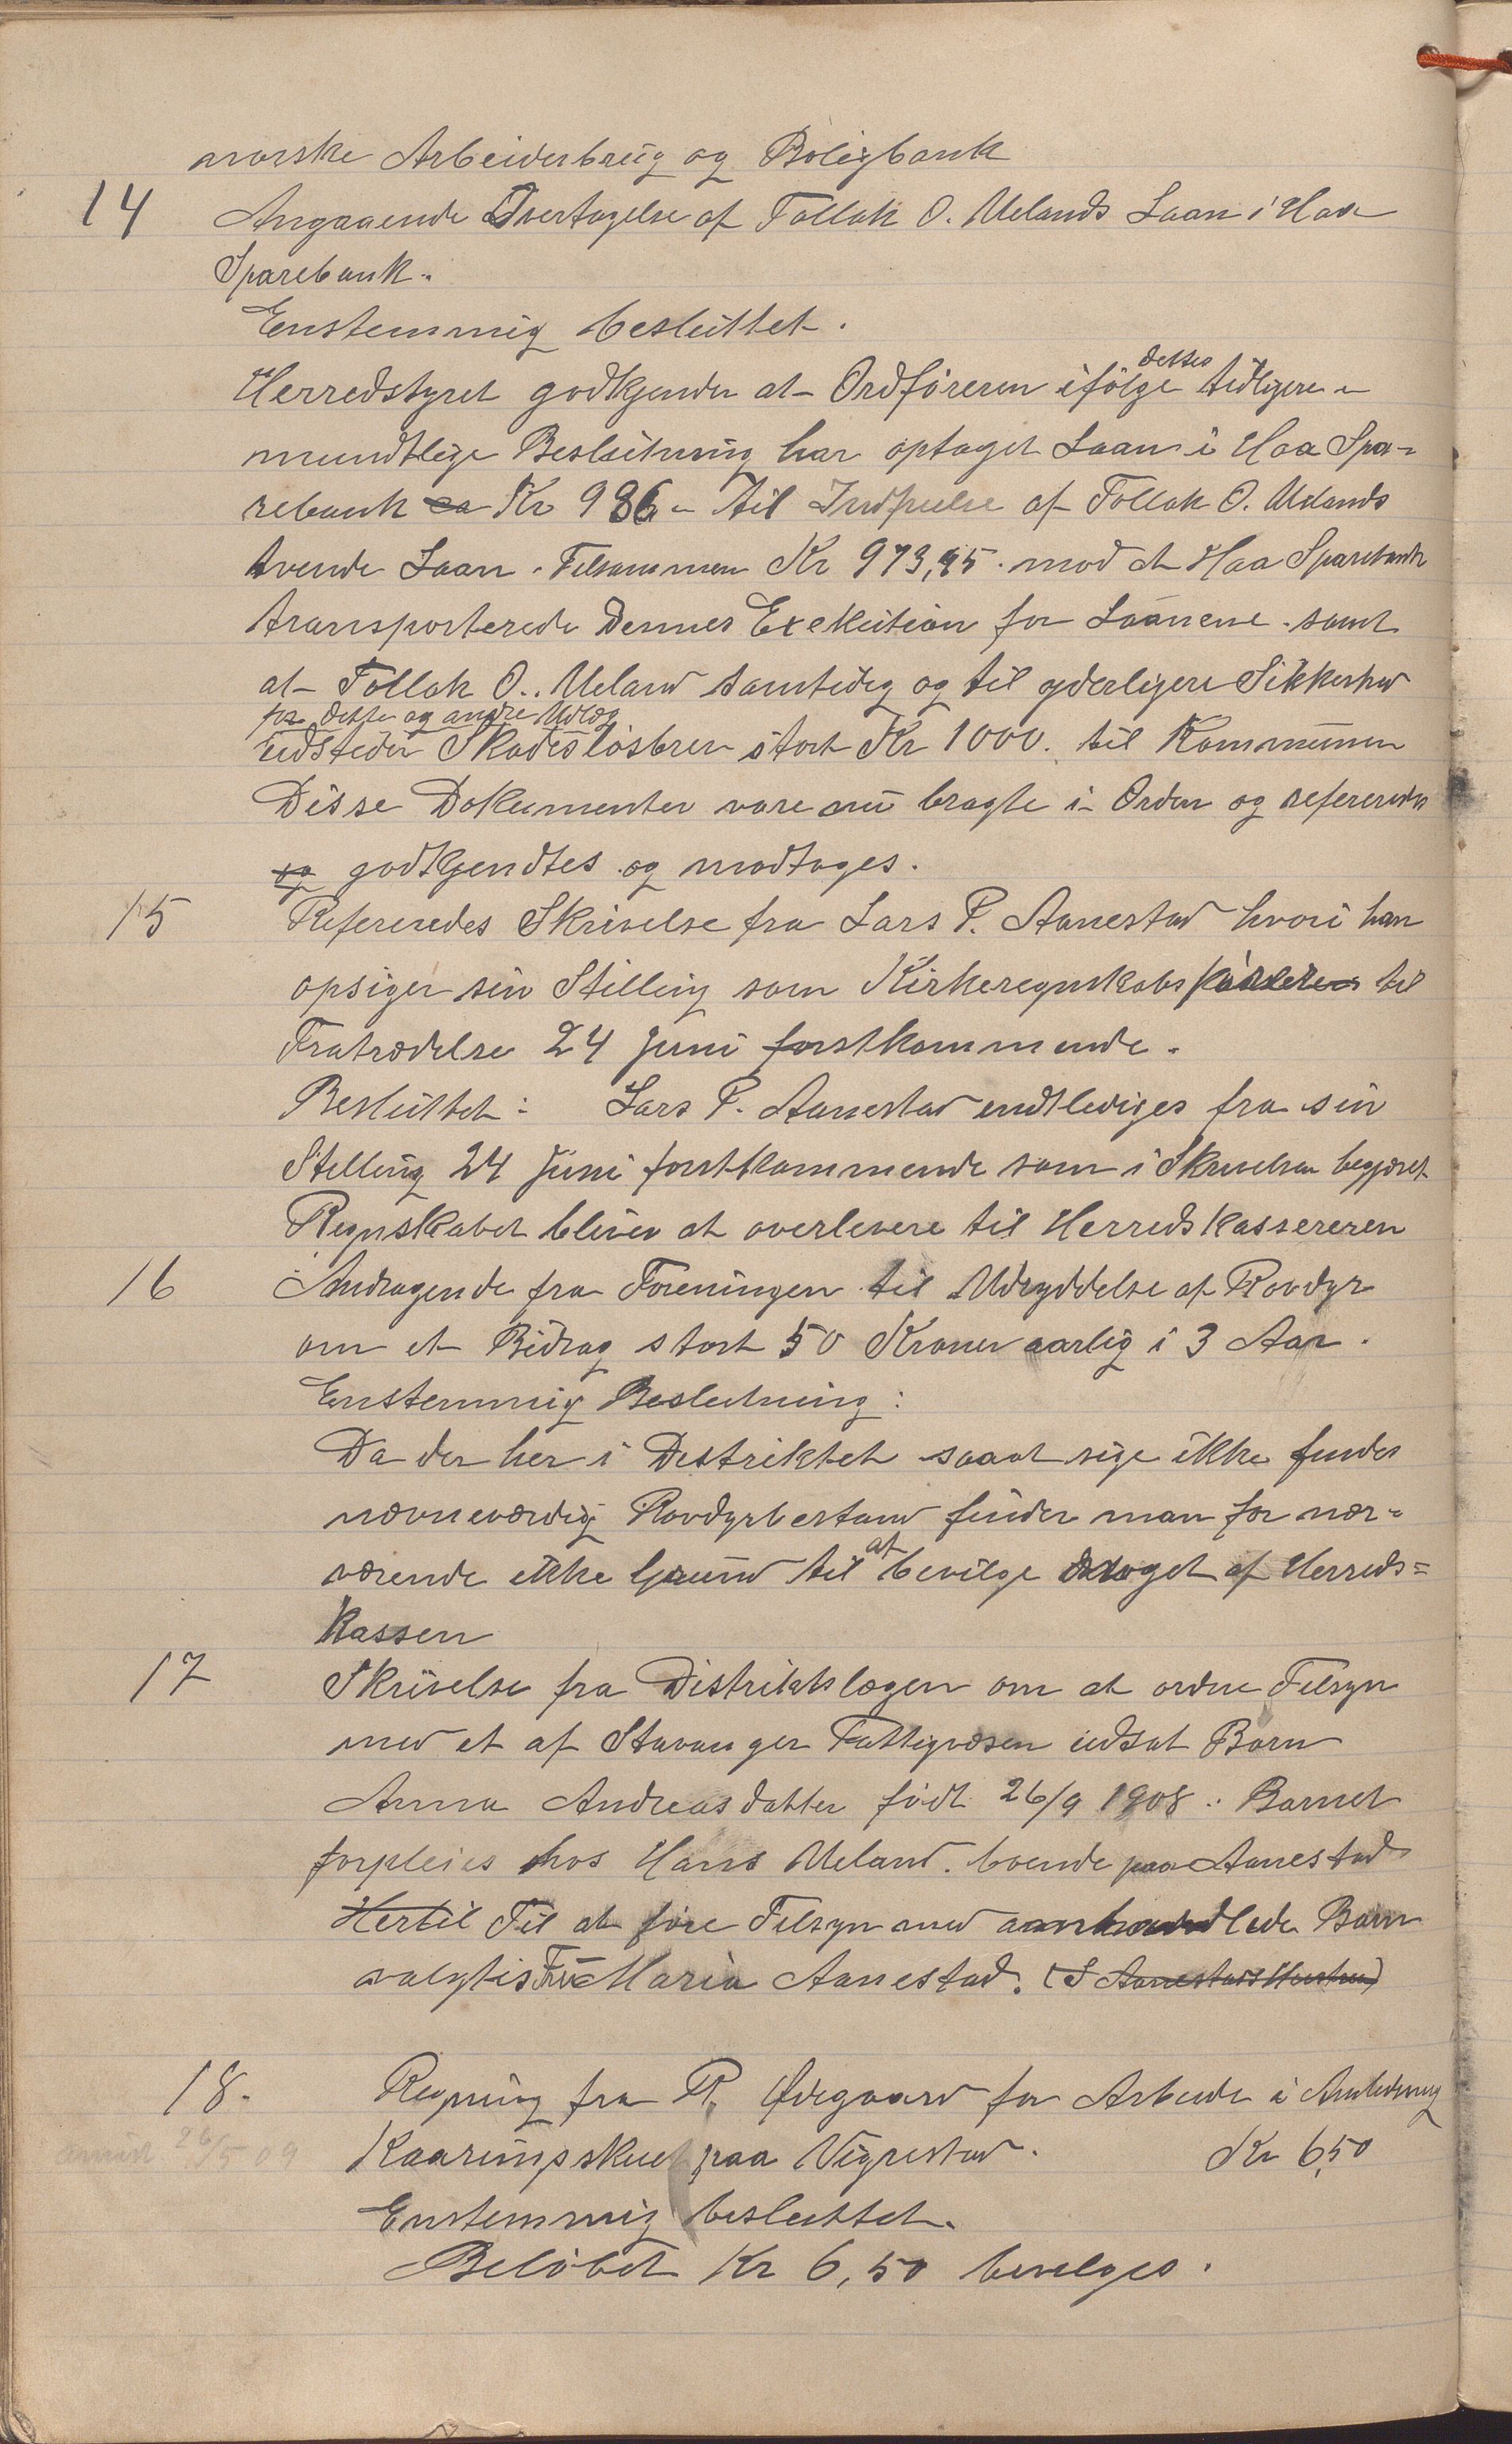 norske Arbeiderbrug og Boligbank
14 Angaaende Overtagelse af Tollak O. Uelands Laan i Haa
Sparebank.
Enstemmig besluttet.
Herredstyret godkjender at Ordføreren ifølge dettes tidligere
mundtlige Beslutning har optaget Laan i Haa Spa-
rebank Kr 986 - til Indfrielse af Tollak O. Uelands
tvende Laan. Tilsammen Kr 973,95. mod at Haa Sparebank
transporterede Dennes Exekution for Laanene. samt
at Tollak O. Ueland samtidig og til yderligere Sikkerhed
for dette og andre Udlæg
udsteder Skadesløsbrev stort Kr 1000. til Kommunen
Disse Dokumenter vare nu bragte i Orden og refereredes
og godkjendtes og modtages.
15 Refereredes Skrivelse fra Lars P. Aanestad hvori han
opsiger sin Stilling som Kirkeregnskabs til
Fratrædelse 24 Juni førstkommende.
Besluttet: Lars P. Aanestad endtlediges fra sin
Stelling 24 Juni førstkommende som i Skrivelsen begjæret
Regnskabet bliver at overlevere til Herredskassereren
16 Andragende fra Foreningen til Udryddelse af Rovdyr
om et Bidrag stort 50 Kroner aarlig i 3 Aar.
Enstemmig Beslutning:
Da der her i Destriktet saaat sige ikke findes
nævneværdig Rovdyrbestand finder man for nær-
værende ikke Grund til at bevilge noget af Herreds=
kassen
17 Skrivelse fra Distriktslægen om at ordne Tilsyn
med et af Stavanger Fattigvæsen udsat Barn
Anna Andreasdatter født 26/9 1908. Barnet
forpleies hos Hans Ueland. boende paa Aanestad
Hertil Til at føre Tilsyn med omhandlede Barn
valgtes Fru Maria Aanestad. (S Aanestads Hustru)
18. Regning fra R. Ødegaard for Arbeide i Anledning
26/5 09 Kaaringsskuet paa Vigrestad. Kr 6,50
Enstemmig besluttet.
Beløbet Kr 6,50 bevilges.